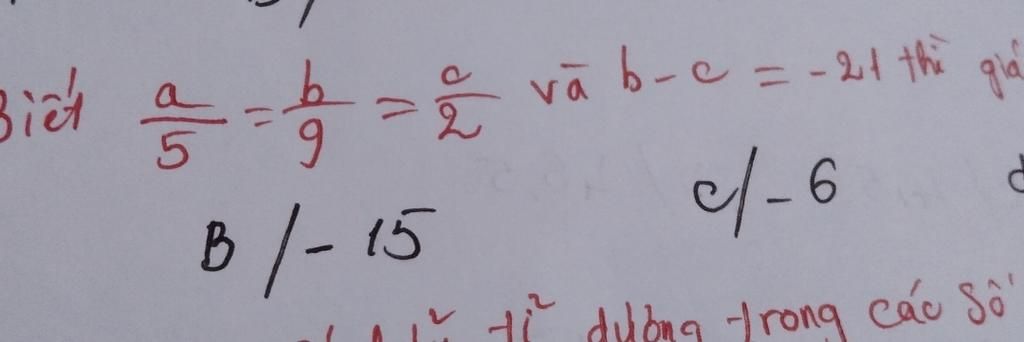 Biết a/5 = b/9 = c/2 và b - c = -21 thì giá
B/ - 15 c/ - 6
tỉ dương trong các số